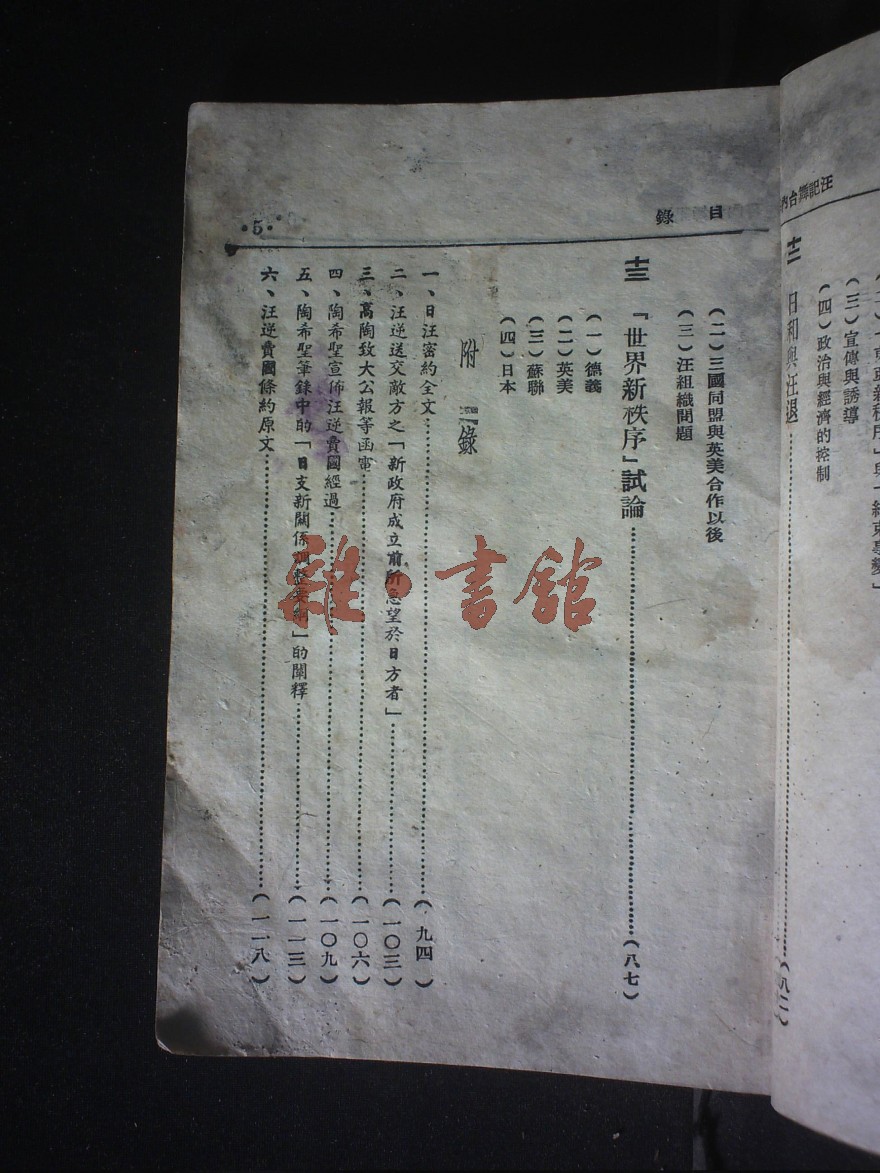 汪記舞台內
(三)宣傳與誘導
(四)政治與經濟的控制
十二 日和與汪退……(八二)
目錄
•5•
(二)三國同盟與英美合作以後
(三)汪組織問題
十三 「世界新秩序」試論……(八七)
(一)德義
(二)英美
(三)蘇聯
(四)日本
附錄
一、日汪密約全文……(九四)
二、汪逆送交敵方之「新政府成立前所急望於日方者」……(一〇三)
三、高陶致大公報等函電……(一〇六)
四、陶希聖宣佈汪逆賣國經過……(一〇九)
五、陶希聖筆錄中的「日支新關係調整要綱」的闡釋……(一一三)
六、汪逆賣國條約原文……(一一八)
雜·書館